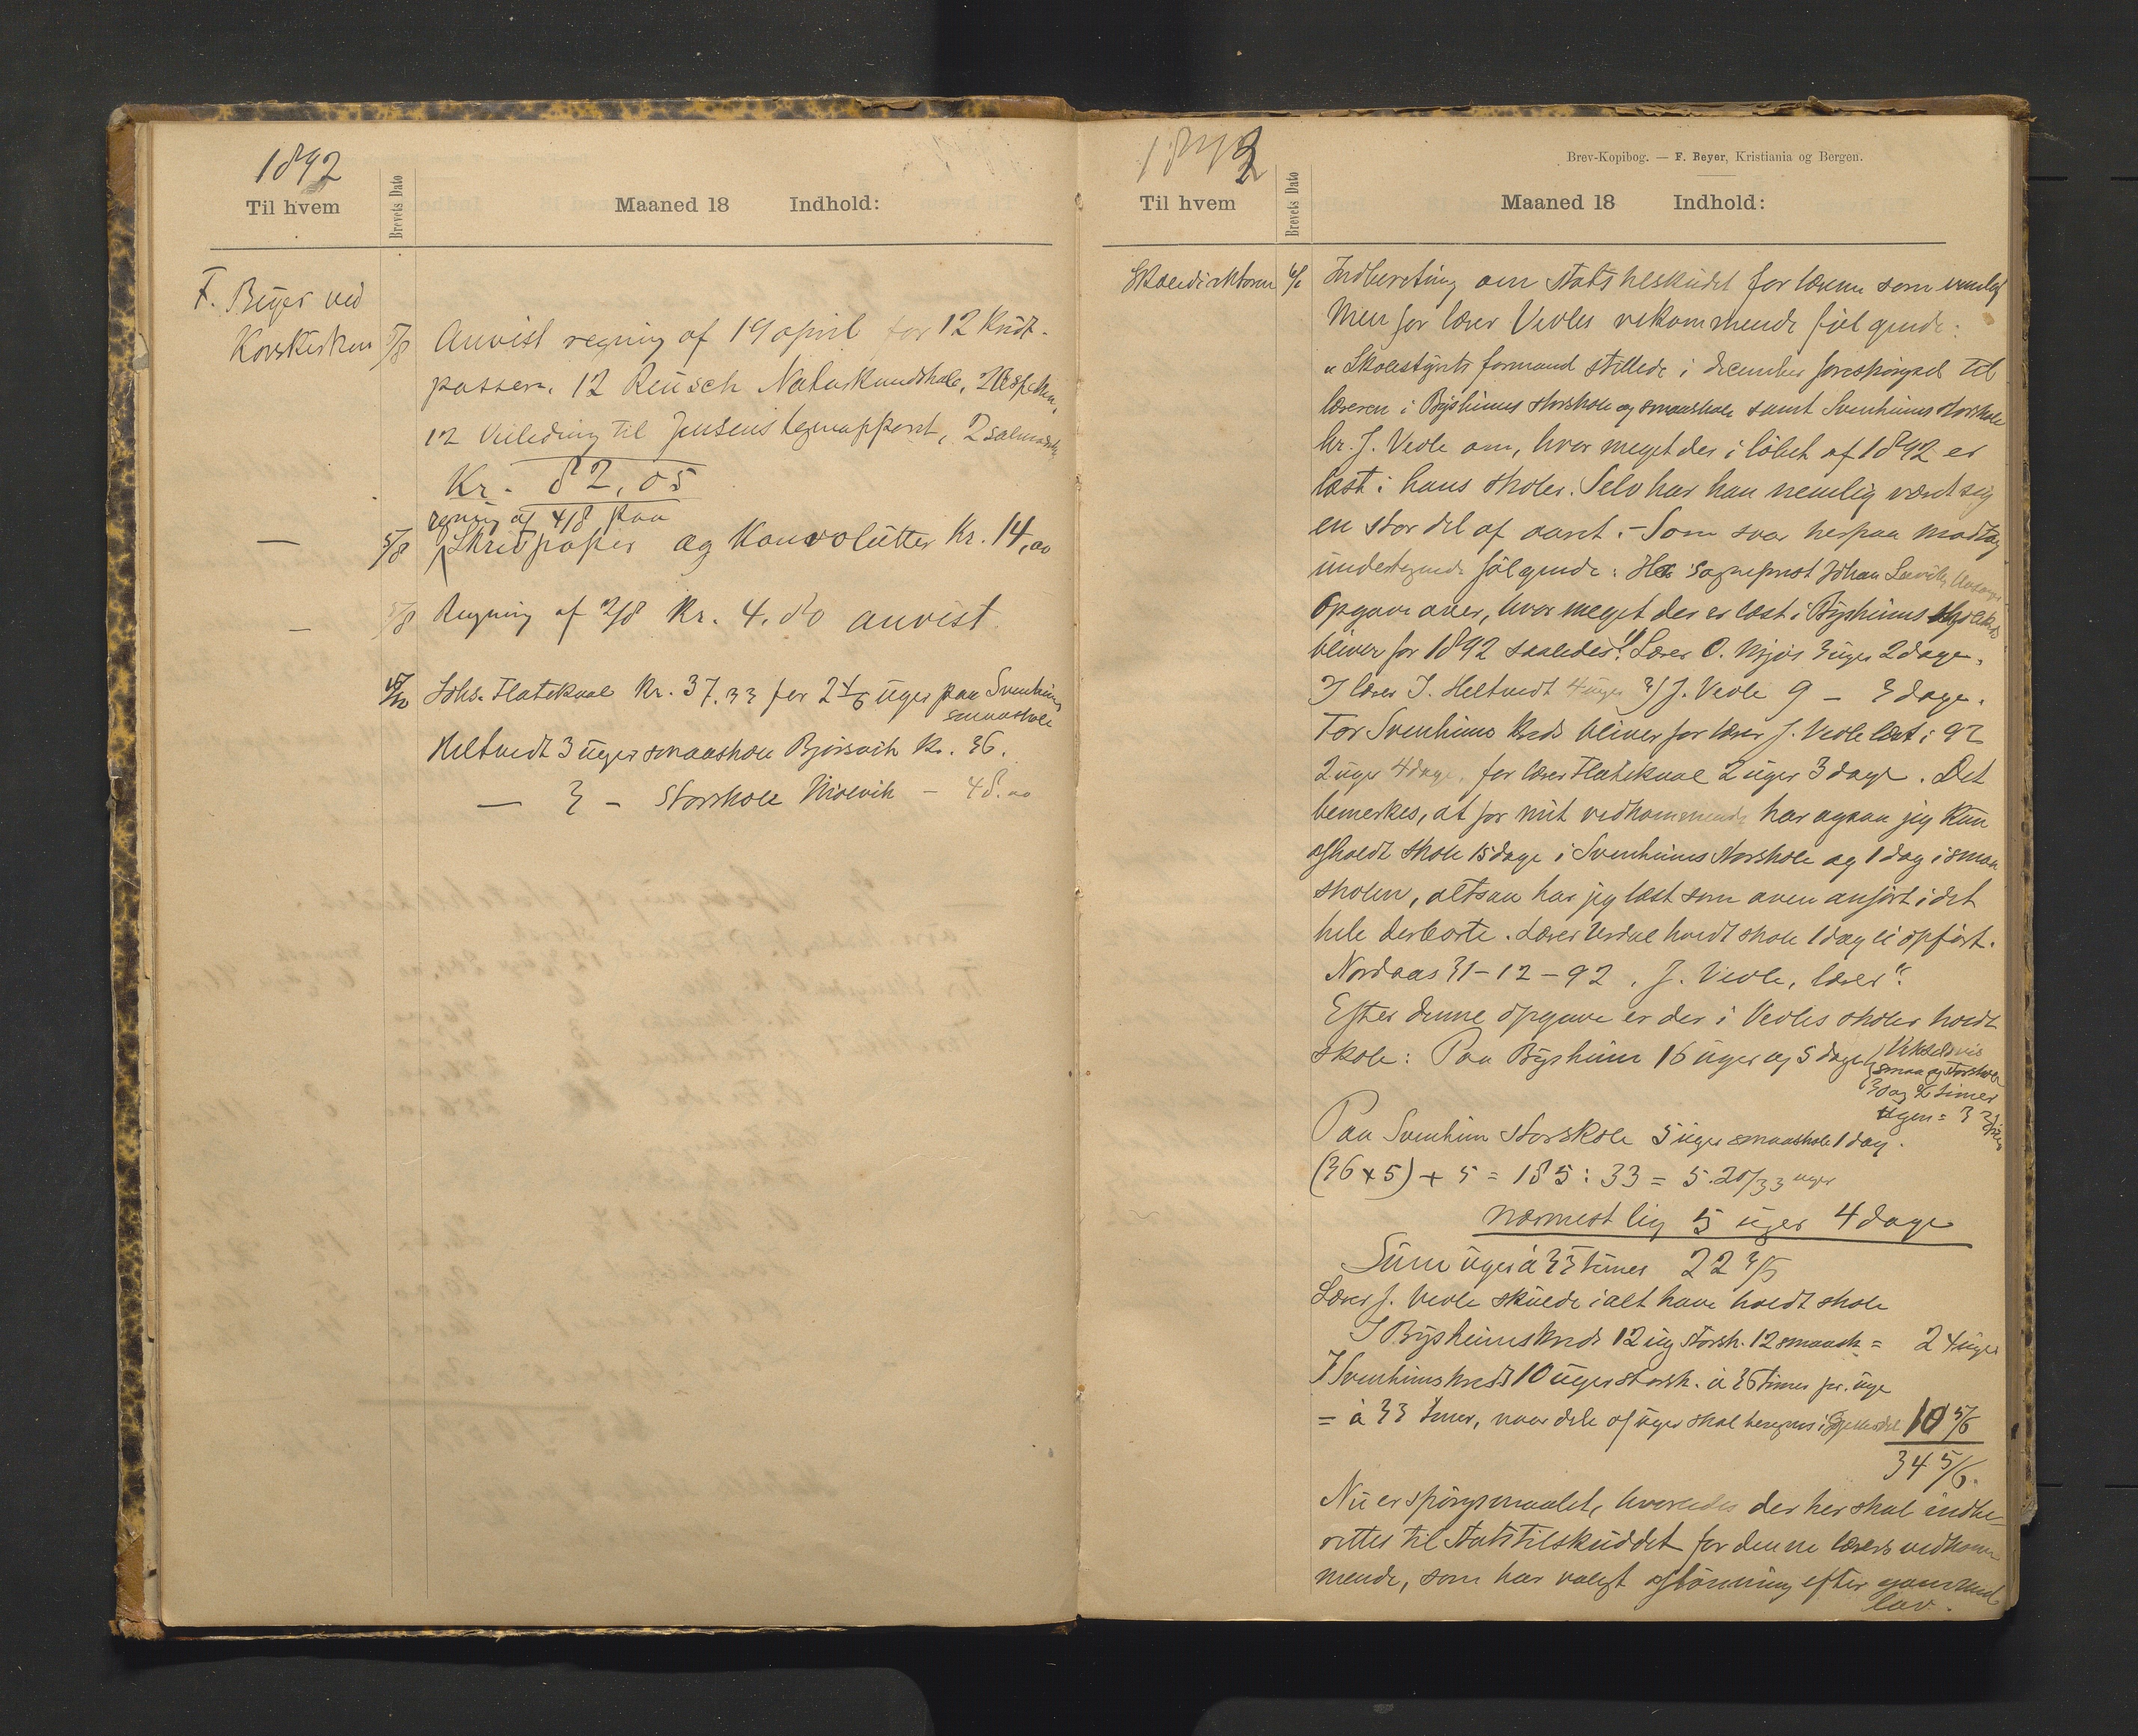 1892
Til hvem
Brevets Dato
Maaned 18 Indhold:
F. Beyer ved
Korskirken 5/8 Anvist regning af 19 april for 12 Kridt-
passere. 12 Reusch Naturkundskab,
12 Veiledning til Jensens tegneapperat, 2
Kr. 82,05
regning af 4/8 paa
— 5/8 Skrivpapir og Konvolutter Kr. 14,00
— 5/8 Regning af 2/8 Kr. 4.80 anvist
Johs. Flatekval Kr. 37.33 for 2 4/6 uger paa Svenheims
smaaskole
Heltvedt 3 uger smaaskole Bjørsvik Kr. 36.
— 3 — Storskole — 48.00
Brev-Kopibog. — F. Beyer, Kristiania og Bergen.
Til hvem
Brevets Dato
Maaned 18 Indhold:
Skoledirektøren Indberetning om statstilskudet for lærerne som vanlig
Men for lærer Vevles vekommende følgende:
"Skolestyrets formand stillede i december forespørgsel til
læreren i Byshimes storskole og smaaskole samt Svenhims storskole
hr. J. Vevle om, hvor meget der i løbet af 1892 er
læst i hans skoler. Selv har han nemlig været syg
en stor del af aaret. – Som svar herpaa modtog
undertegnede følgende: Hr sogneprest Johan
Opgave over, hvor meget der er læst i Byshimes
bliver for 1892 saaledes: 1) Lærer O. Mjøs 3 uger 2 dage.
2) lærer J. Heltvedt 4 uger 3) J. Vevle 9 — 3 dage.
For Svenhims kreds bliver for lærer J. Vevle læst i 92
2 uger 4 dage, for lærer Flatekval 2 uger 3 dage. Det
bemerkes, at for mit vedkommende har ogsaa jeg kun
afholdt skole 15 dage i Svenhims storskole og 1 dag i smaa
skolen, altsaa har jeg læst som oven anført i det
hele derborte. Lærer holdt skole 1 dag ei opført.
Nordaas 31–12–92. J. Vevle, lærer".
Efter denne opgave er der i Vevles skoler holdt
skole: Paa Byshim 16 uger og 5 dage (Vekselvis
smaa og storskole
30 og 36 timer
ugen = 33
Paa Svenhim storskole 5 uger smaaskole 1 dag.
(36 x 5) + 5 = 185 : 33 = 5.20/33 uger
nærmest lig 5 uger 4 dage
Sum uger á 33 timer 22 3/5
Lærer J. Vevle skulde ialt have holdt skole
I Byshimskreds 12 ug storsk. 12 smaask = 24 uger
I Svenhimskreds 10 uger storsk. á 36 timer pr. uge
= á 33 timer, naar dele af uger skal beregnes i 10 5/6
34 5/6.
Nu er spørgsmaalet, hvorledes der her skal indbe-
rettes til statstilskuddet for denne lærers vedkom
mende, som har valgt aflønning efter gammel
lov.